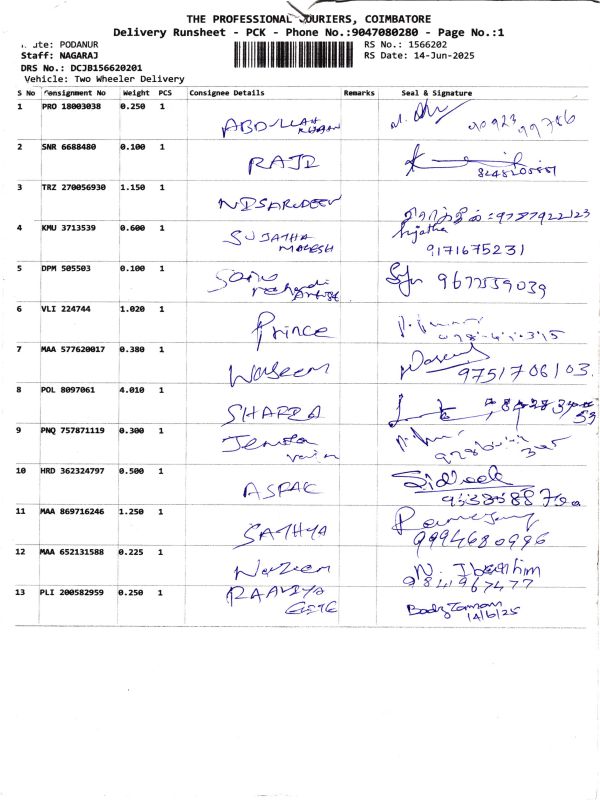 THE PROFESSIONAL COURIERS, COIMBATORE
Delivery Runsheet - PCK - Phone No.:9047080280 - Page No.:1
Route: PODANUR RS No.: 1566202
Staff: NAGARAJ RS Date: 14-Jun-2025
DRS No.: DCJB156620201
Vehicle: Two Wheeler Delivery
S No Consignment No Weight PCS Consignee Details Remarks Seal & Signature
1 PRO 18003038 0.250 1
ABDULLAH KHAN
2 SNR 6688480 0.100 1
RAJI
3 TRZ 270056930 1.150 1
NISARUDEEN
9787922123
4 KMU 3713539 0.600 1
SUJATHA MAHESH Sujatha
9171675231
5 DPM 505503 0.100 1
9677559039
6 VLI 224744 1.020 1
Prince
7 MAA 577620017 0.380 1
Waseem Waseem
9751706103
8 POL 8097061 4.010 1
9 PNQ 757871119 0.300 1
10 HRD 362324797 0.500 1
Sidheek
11 MAA 869716246 1.250 1
SATHYA
9994680996
12 MAA 652131588 0.225 1
Wazeem N. Ibrahim
9841967477
13 PLI 200582959 0.250 1
RAAVIYA
14/6/25